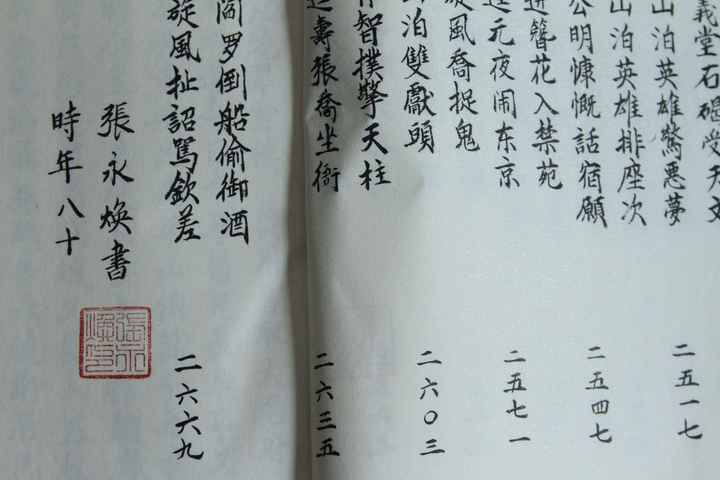 義堂石碣受天文
山泊英雄驚悪夢
二五一七
山泊英雄排座次
公明慷慨話宿願
二五四七
進簪花入禁苑
元夜闹东京
二五七一
旋風喬捉鬼
泊雙獻頭
二六〇三
智撲擎天柱
壽張喬坐衙
二六三五
阎罗倒船偷御酒
旋風扯詔駡欽差
二六六九
張永焕書
時年八十